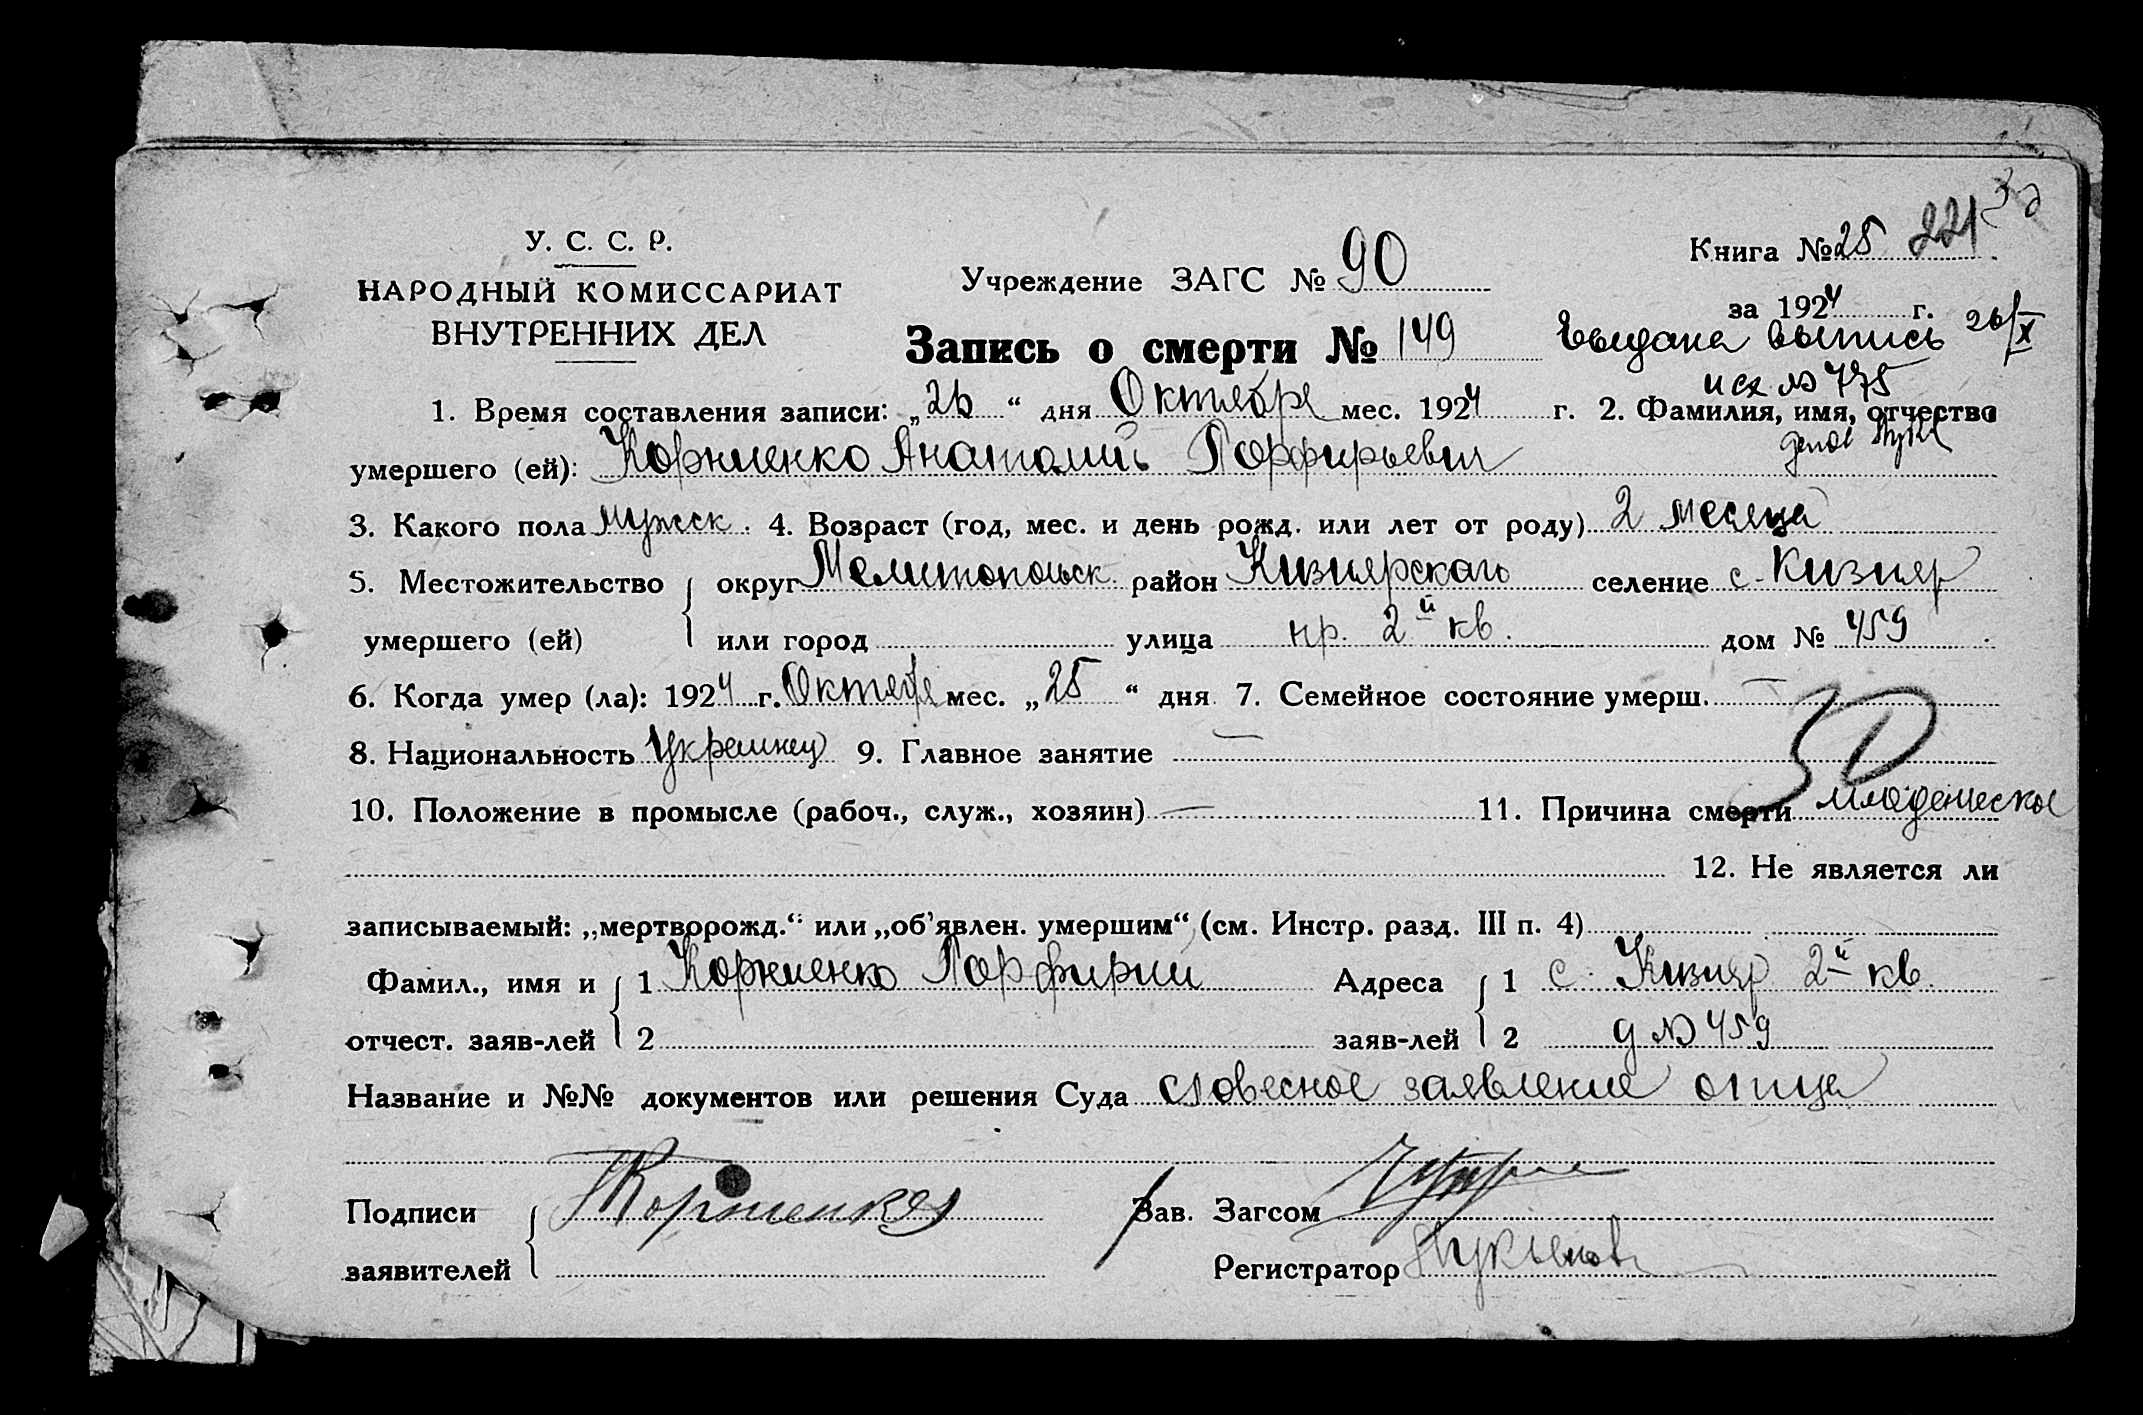 У. С. С. Р.
НАРОДНЫЙ КОМИССАРИАТ
ВНУТРЕННИХ ДЕЛ
Учреждение ЗАГС № 90
Книга № 25 221
за 1924 г.
Запись о смерти № 149
Выдана выпись 26/X
исх № 775
1. Время составления записи: „26“ дня Октября мес. 1924 г. 2. Фамилия, имя, отчество
умершего (ей): Корниенко Анатолий Порфирьевич
3. Какого пола мужск. 4. Возраст (год, мес. и день рожд. или лет от роду) 2 месяца
5. Местожительство округ Мелитопольск. район Кизиярскаго селение с. Кизияр
умершего (ей) или город улица 2й кв. дом № 459
6. Когда умер (ла): 1924 г. Октября мес. „25“ дня 7. Семейное состояние умерш. —
8. Национальность Украинец 9. Главное занятие —
10. Положение в промысле (рабоч., служ., хозяин) — 11. Причина смерти младенческая
12. Не является ли
записываемый: „мертворожд.“ или „об’явлен. умершим“ (см. Инстр. разд. III п. 4)
Фамил., имя и 1 Корниенко Порфирий Адреса 1 с. Кизияр 2й кв.
отчест. заяв-лей 2 заяв-лей 2 д № 459
Название и №№ документов или решения Суда словесное заявление отца
Подписи Корниенко Зав. Загсом
заявителей Регистратор